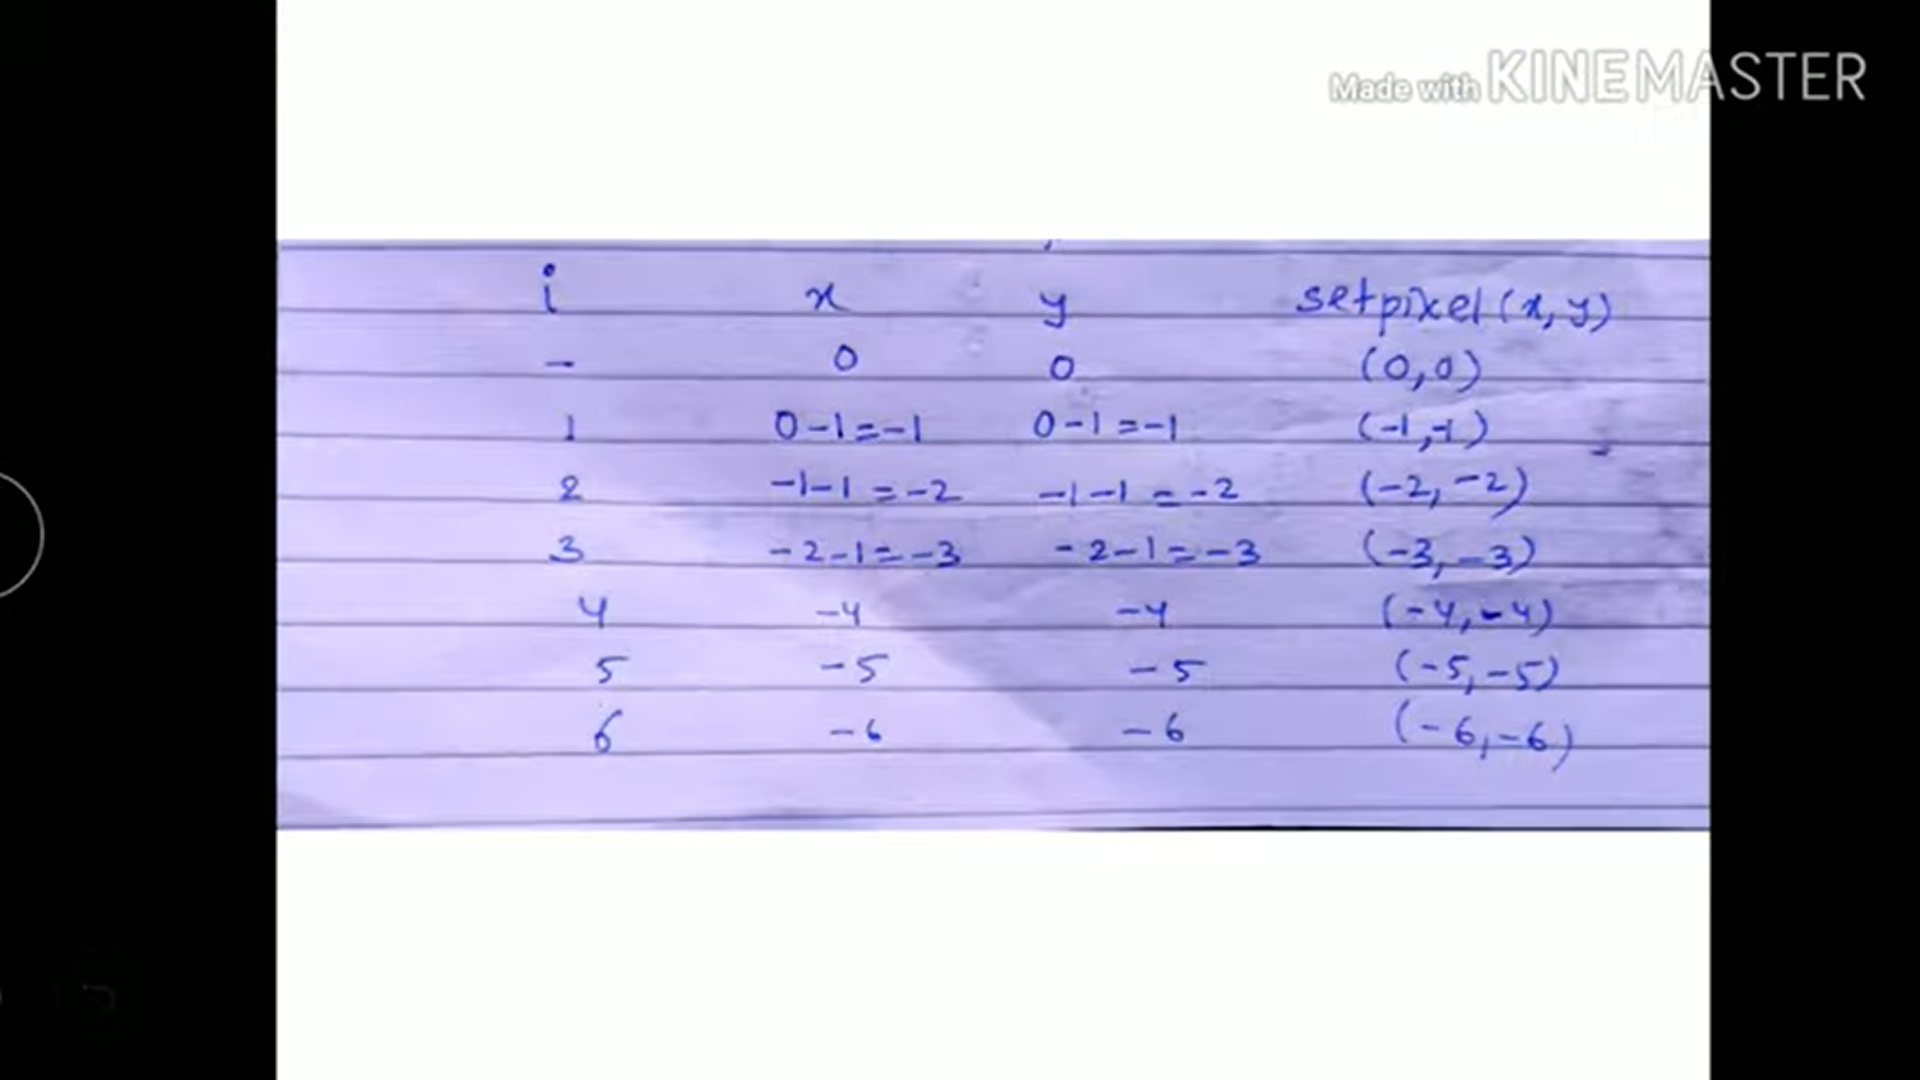 Made with KINEMASTER
i x y setpixel (x, y)
- 0 0 (0,0)
1 0-1=-1 0-1=-1 (-1,-1)
2 -1-1=-2 -1-1=-2 (-2,-2)
3 -2-1=-3 -2-1=-3 (-3,-3)
4 -4 -4 (-4,-4)
5 -5 -5 (-5,-5)
6 -6 -6 (-6,-6)